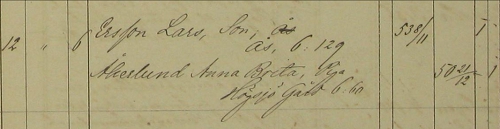 12 " 6 Ersson Lars, Son, Ås 538/11 1
Ås, 6. 129
Åkerlund Anna Brita, Pga 50 21/12 1
Högsjö Gård 6. 60